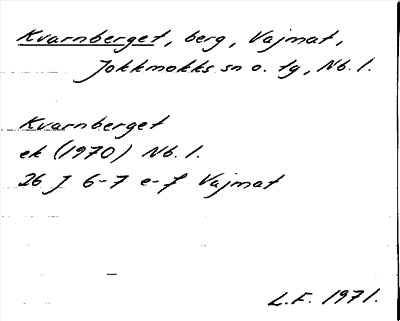 Kvarnberget, berg, Vajmat,
Jokkmokks sn o. tg, Nb. l.
Kvarnberget
ek (1970) Nb. l.
26 J 6-7 e-f Vajmat
L.F. 1971.